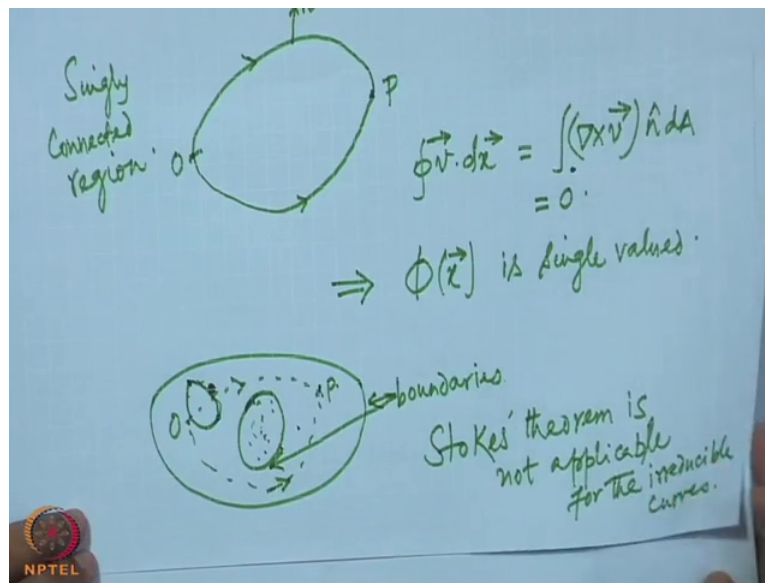 Singly
Connected
region.
O
P
∮v⃗.dx⃗ = ∫(∇×v⃗) n̂ dA
= 0.
⇒ ϕ(x⃗) is single valued.
O
P.
boundaries.
Stokes' theorem is
not applicable
for the irreducible
curves.
NPTEL